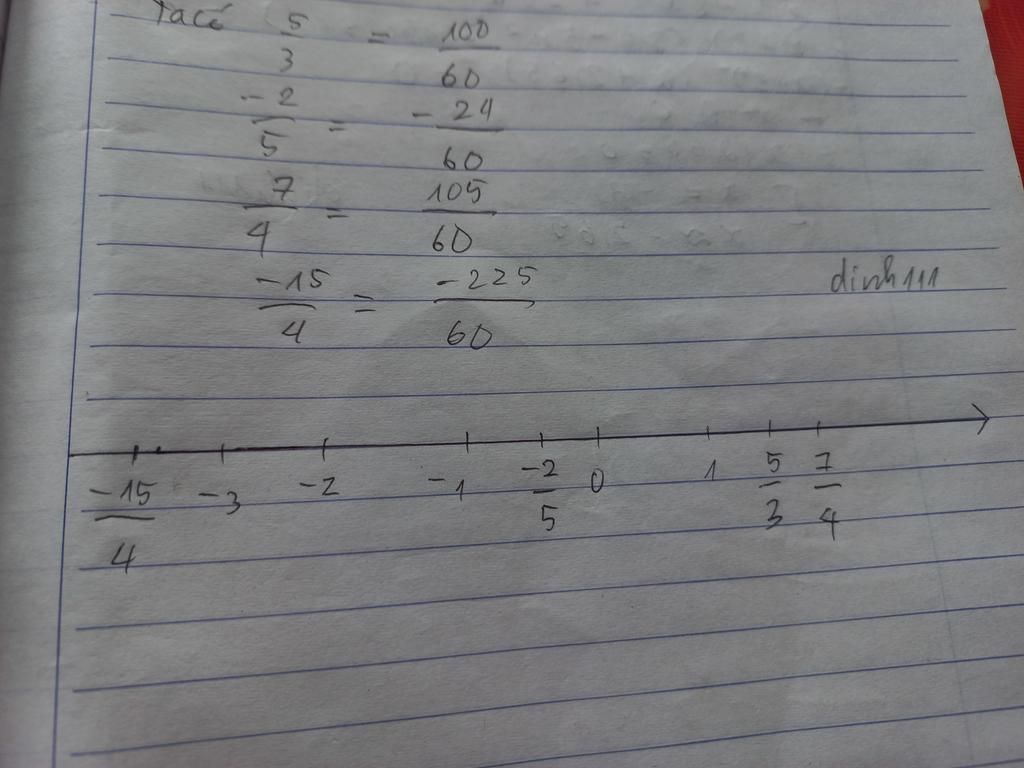 Ta có 5/3 = 100/60
-2/5 = -24/60
7/4 = 105/60
-15/4 = -225/60
dinh111
-15/4 -3 -2 -1 -2/5 0 1 5/3 7/4